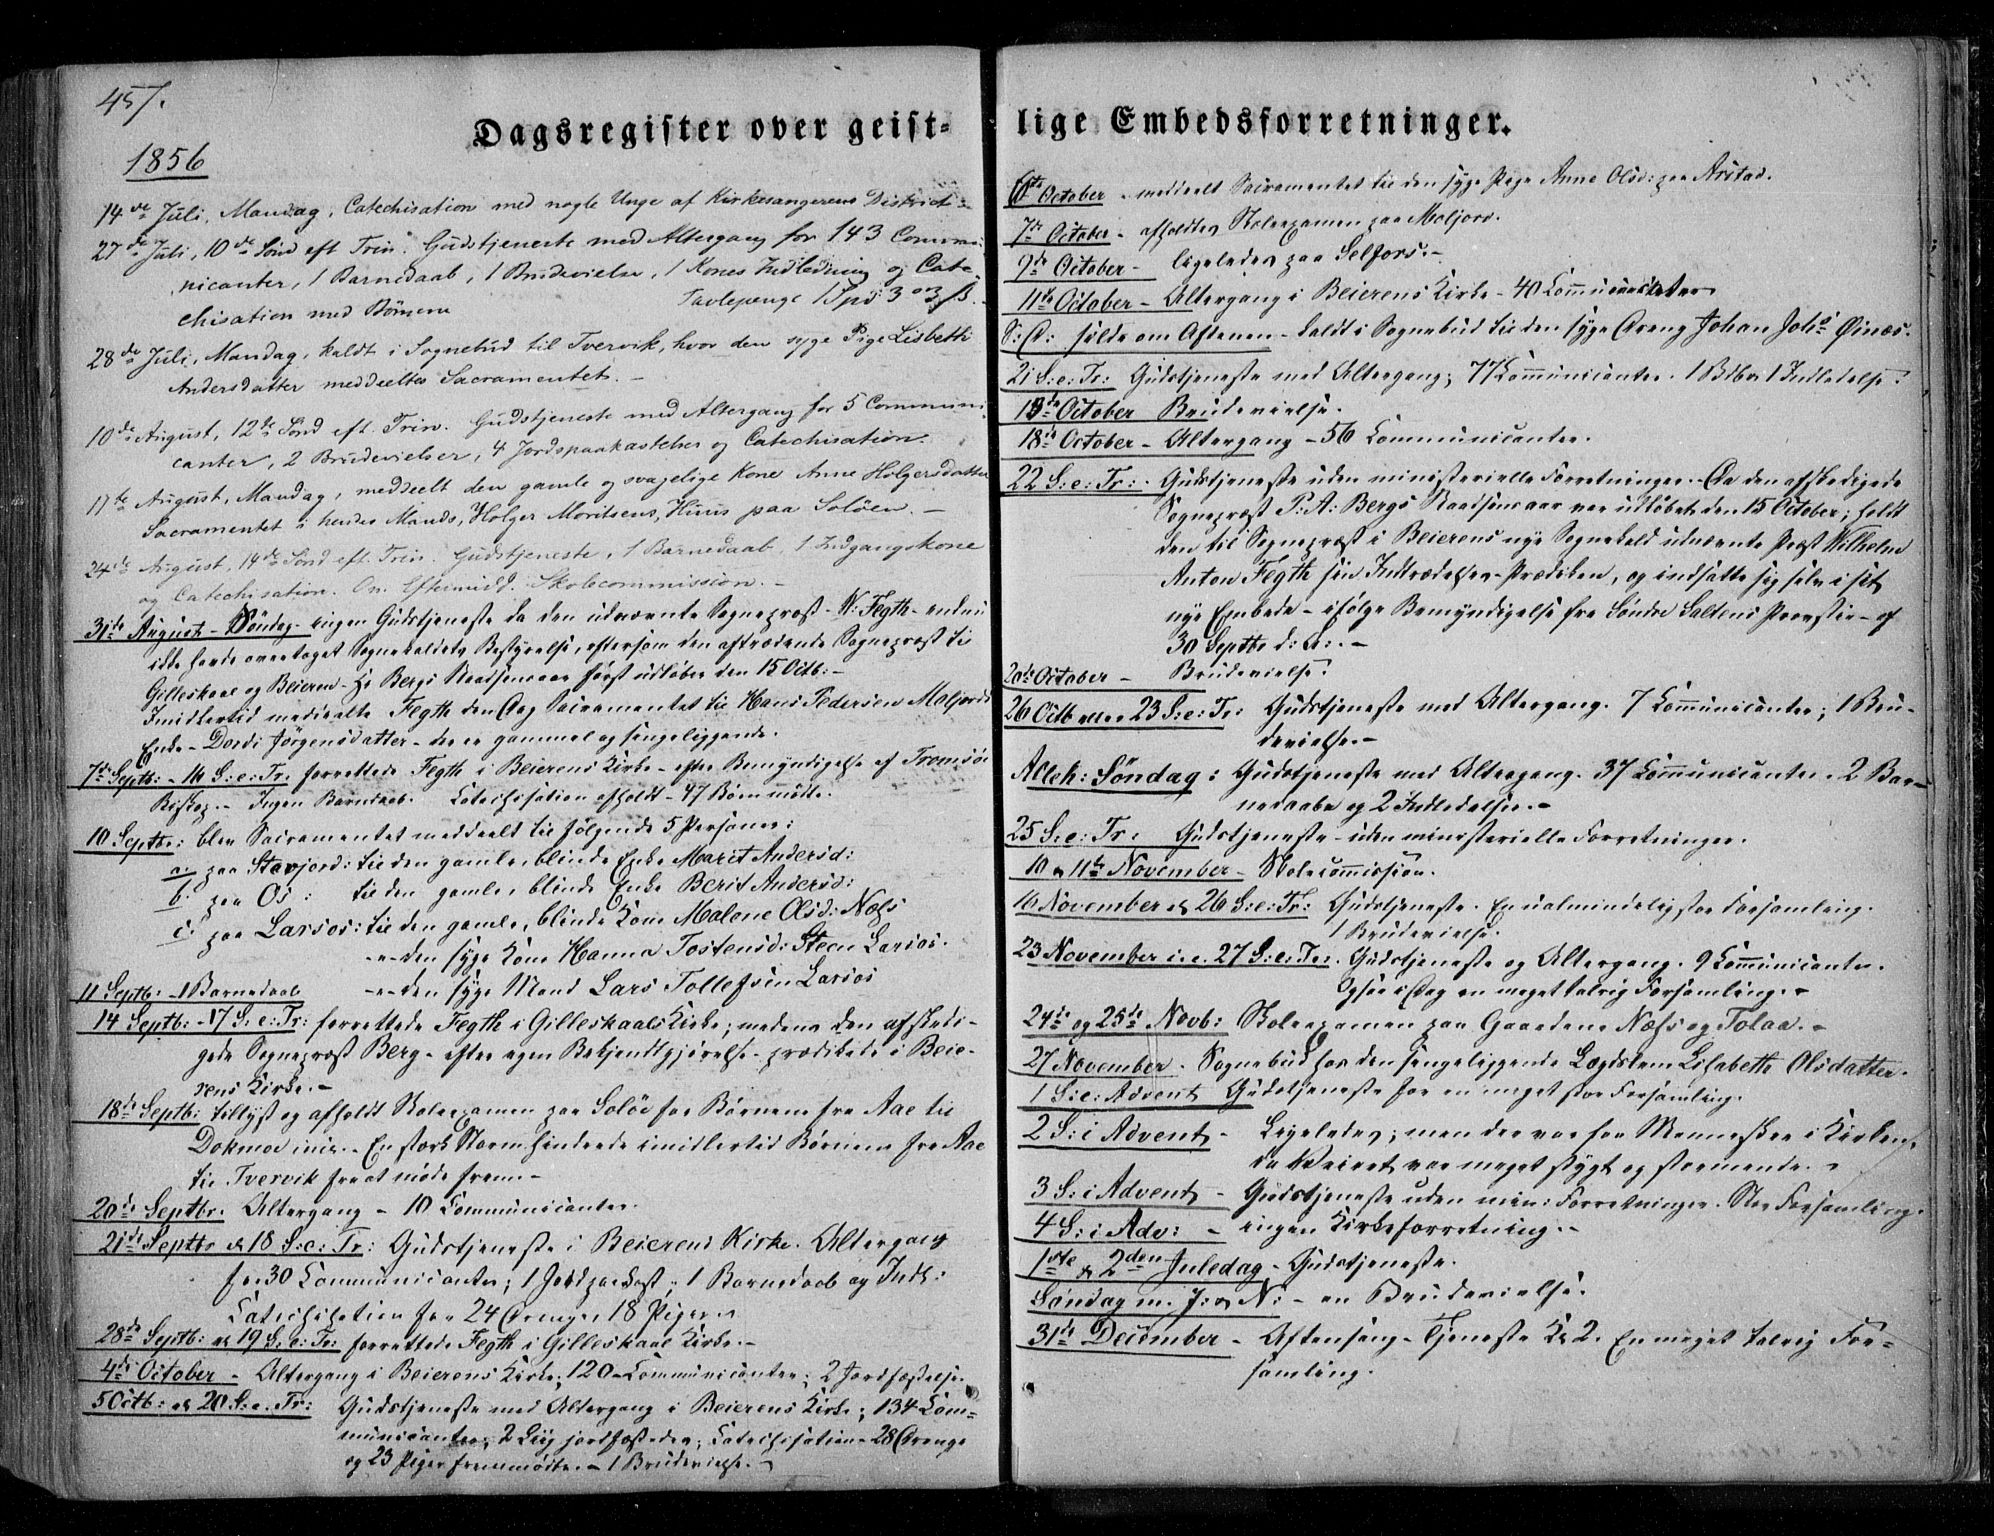 457.
Dagsregister over geist-
1856
14de Juli, Mandag, Catechisation med nogle Unge af Kirkesangerens District.
27de Juli, 10de Sönd eft. Trin. Gudstjeneste med Altergang for 143 Commu-
nicanter, 1 Barnedaab, 1 Brudevielse, 1 Kones Indledning og Cate-
chisation med Börnene Tavlepenge 1 Spd 3 ort
28de Juli, Mandag, kaldt i Sognebud til Tvervik, hvor den syge Pige Lisbeth
Andersdatter meddeeltes Sacramentet. —
10de August, 12te Sönd eft. Trin. Gudstjeneste med Altergang for 5 Communi-
canter, 2 Brudevielser, 4 Jordspaakastelser og Catechisation.
11te August, Mandag, meddeelt den gamle og svagelige Kone Anne Holgersdatter
Sacramentet i hendes Mands, Holger Moritsens, Huus paa Solöen. —
24de August, 14de Sönd eft. Trin. Gudstjeneste, 1 Barnedaab, 1 Indgangskone
og Catechisation. Om Eftermidd. Skolecommission. —
31de August - Söndag - ingen Gudstjeneste da den udnævnte Sognepræst - W: Fegth - endnu
ikke havde overtaget Sognekaldets Bestyrelse, eftersom den aftrædende Sognepræst til
Gilleskaal og Beieren - Hr Bergs Naadsensaar först udlöber den 15 Octb: -
Imidlertid meddeelte Fegth den Dag Sacramentet til Hans Pedersens Moljords
Enke - Dordi Jörgensdatter - der er gammel og sengeliggende.
7de Septb: - 16 S: e: Tr: forrettede Fegth i Beierens Kirke - efter Bemyndigelse af Tromsöe
Biskop. - Ingen Barnedaab. Katechisation afholdt - 47 Börn mödte.
10 Septb: blev Sacramentet meddeelt til fölgende 5 Personer:
a. paa Stavjord: til den gamle, blinde Enke Marit Andersd:
b. paa Os: til den gamle, blinde Enke Berit Andersd:
c. paa Larsos: til den gamle, blinde Kone Malene Olsd: Næss
-"- den syge Kone Hanna Tostensd: Steen Larsos.
-"- den syge Mand Lars Tollefsen Larsos
11 Septb: - 1 Barnedaab
14 Septb: - 17 S: e: Tr: forrettede Fegth i Gilleskaals Kirke; medens den afskedi-
gede Sognepræst Berg - efter egen Bekjendtgjörelse - prædikede i Beie-
rens Kirke. -
18de Septb: tillyst og afholdt Skoleexamen paa Solöe for Börnene fra Aae til
Dokmoe incl. - En stærk Storm hindrede imidlertid Börnene fra Aae
til Tvervik fra at möde frem. -
20de Septbr. Altergang - 10 Kommunicanter.
21de Septbr & 18 S: e: Tr: Gudstjeneste i Beierens Kirke. Altergang
for 30 Communicanter; 1 Jordpaakast, 1 Barnedaab og Indl:
Katechisation for 24 Drenge, 18 Piger.
28de Septb: & 19 S: e: Tr: forrettede Fegth i Gilleskaal Kirke. -
4de October - Altergang i Beierens Kirke; 120 - Kommunicanter; 2 Jordfæstelser.
5 Octb: & 20 S: e. Tr: Gudstjeneste med Altergang i Beierens Kirke; 134 Kom-
municanter; 2 Liig jordfæstedes; Katechisation - 28 Drenge
og 23 Piger fremmödte. - 1 Brudevielse. -
lige Embedsforretninger.
6te October - meddeelt Sacramentet til den syge Pige Anne Olsd: paa Arstad.
7de October - afholdtes Skoleexamen paa Moljord.
9de October - ligeledes paa Selfors. -
11te October - Altergang i Beierens Kirke - 40 Kommunicanter
S: D: silde om Aftenen - kaldt i Sognebud til den syge Dreng Johan Johs Öines.
21 S: e: Tr: Gudstjeneste med Altergang; 77 Kommunicanter. 1 Btb & 1 Indledelse.
13de October Brudevielse.
18de October - Altergang - 56 Kommunicanter.
22 S: e: Tr: - Gudstjeneste uden ministerielle Forretninger. - Da den afskedigede
Sognepræst P: A: Bergs Naadsensaar var udlöbet den 15 October; holdt
den til Sognepræst i Beierens nye Sognekald udnævnte Præst Wilhelm
Anton Fegth sin Indtrædelses-Prædiken, og indsatte sig selv i sit
nye Embede - ifölge Bemyndigelse fra Söndre Saltens Provstie - af
30 Septbr d: A: -
20de October - Brudevielse.
26 Octb eller 23 S: e: Tr: Gudstjeneste med Altergang. 7 Kommunicanter; 1 Bru-
devielse. -
Alleh: Söndag: Gudstjeneste med Altergang. 37 Kommunicanter. 2 Bar-
nedaabe og 2 Indledelser. -
25 S: e: Tr: Gudstjeneste - uden ministerielle Forretninger.
10 & 11te November - Skolecommission.
16 November & 26 S: e: Tr: Gudstjeneste. En ualmindelig stor Forsamling.
1 Brudevielse.
23 November i. e. 27 S: e: Tr: Gudstjeneste og Altergang. 9 Kommunicanter.
Ogsaa i Dag en meget talrig Forsamling. -
24de og 25de Novb: Skoleexamen paa Gaardene Næss og Tolaa. -
27 November. Sognebud hos den sengeliggende Lægdslem Elisabeth Olsdatter.
1 S: e: Advent Gudstjeneste for en meget stor Forsamling.
2 S: i Advent - Ligeledes; men der var faa Mennesker i Kirken,
da Veiret var meget stygt og stormende. -
3 S: i Advent - Gudstjeneste uden min: Forretninger. Stor Forsamling.
4 S: i Adv: - ingen Kirkeforretning. -
1ste & 2den Juledag - Gudstjeneste.
Söndag m. J: & N: - en Brudevielse.
31de December - Aftensang-Tjeneste Kl 2. En meget talrig For-
samling.